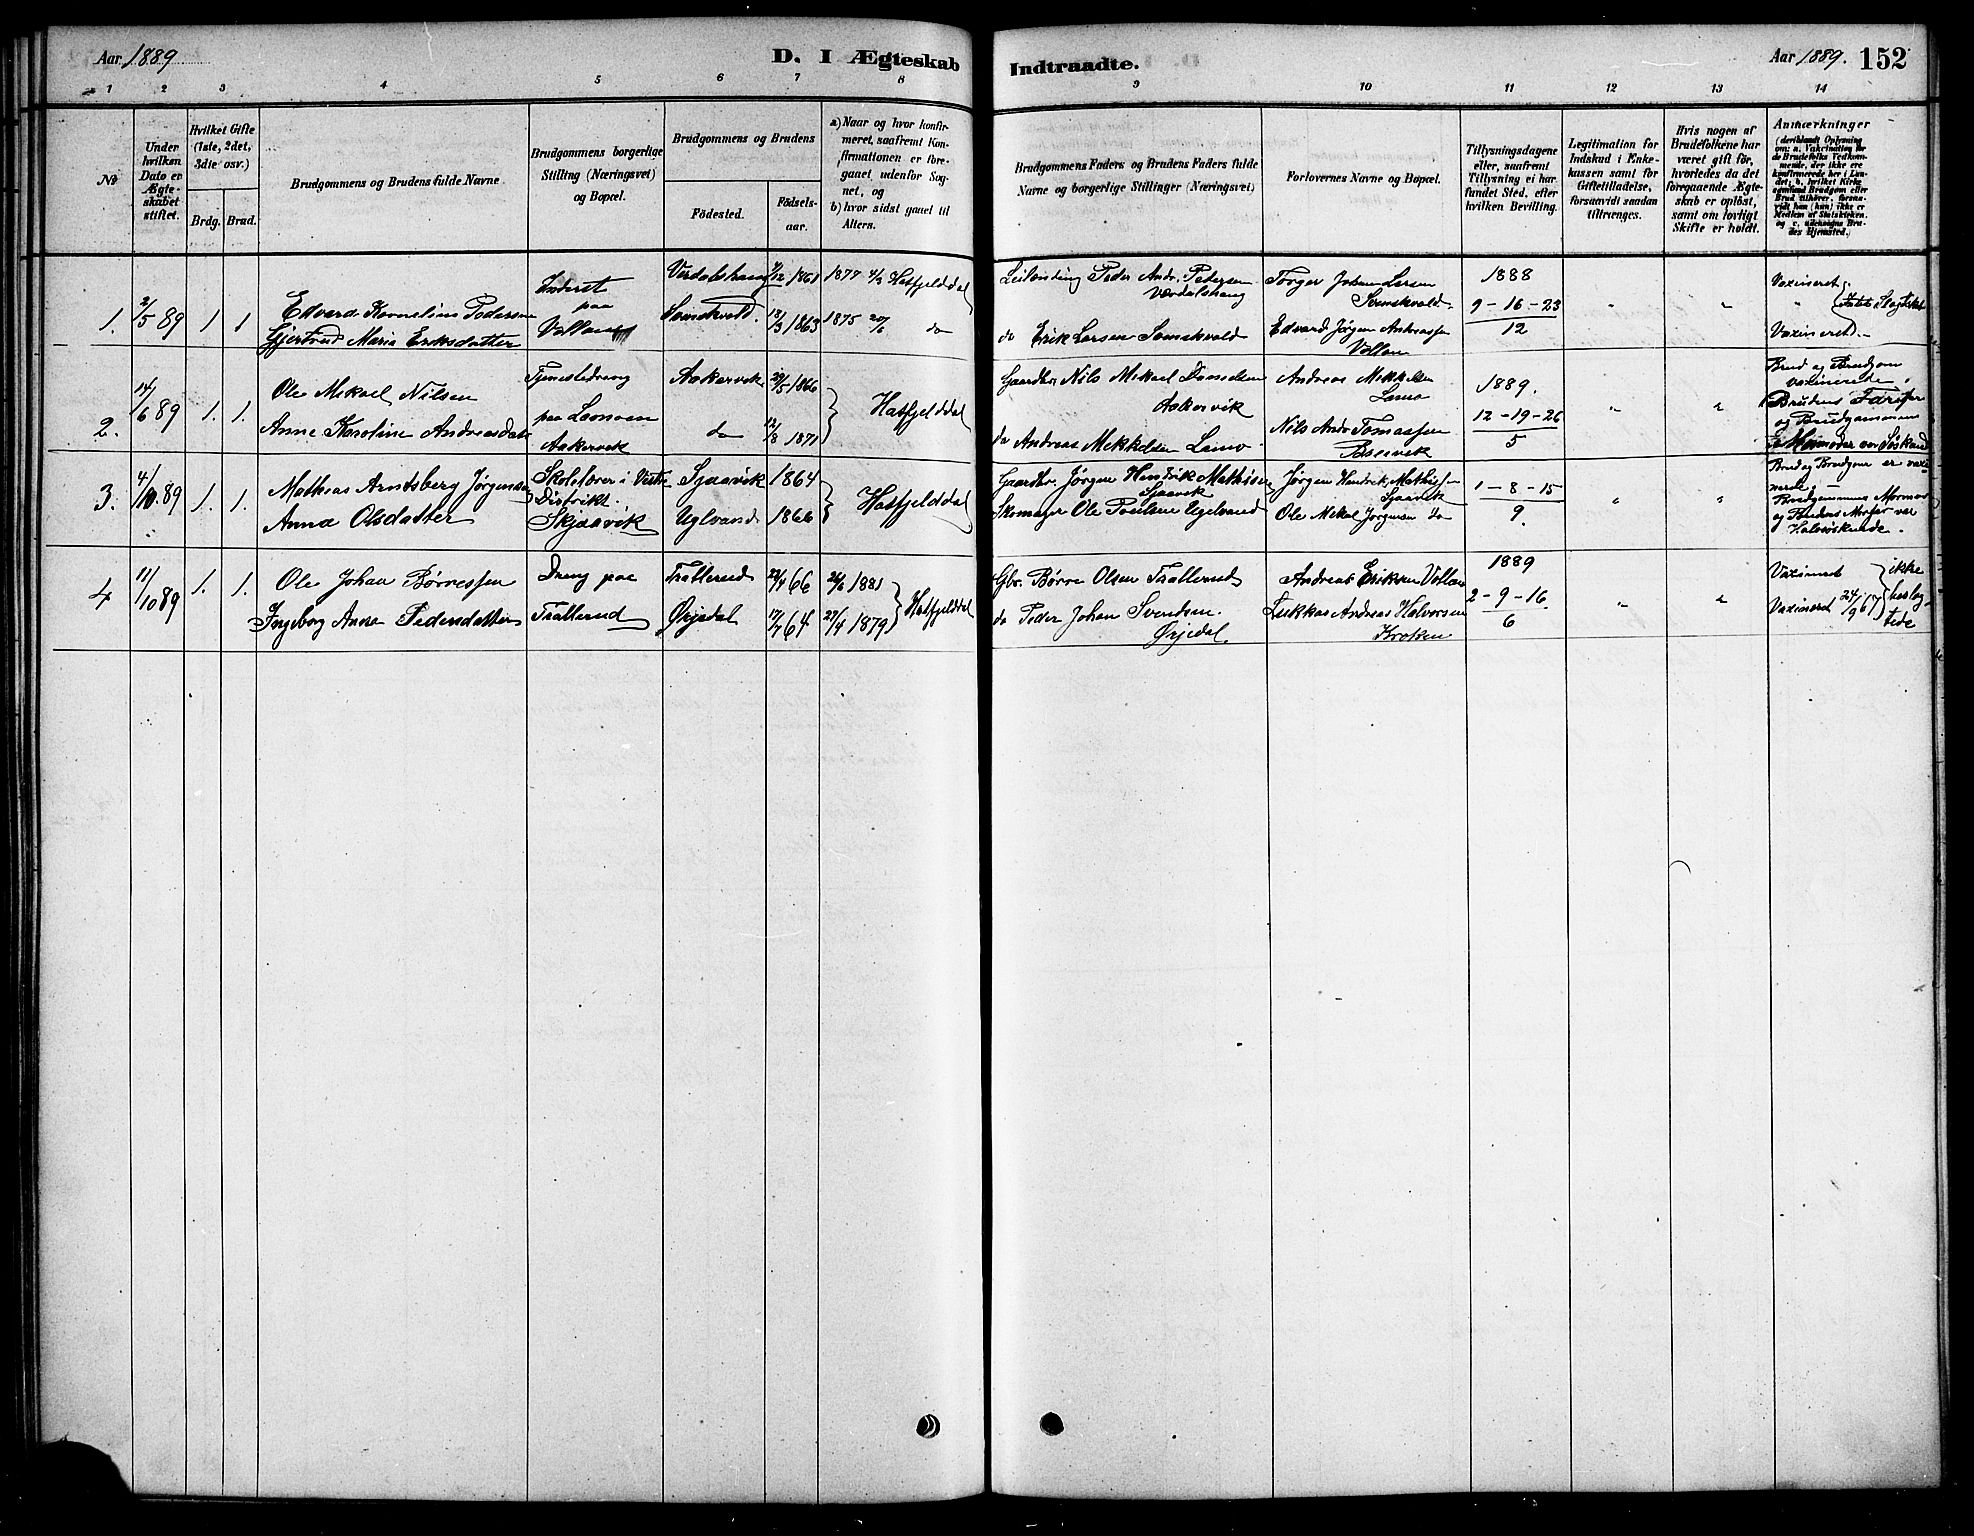 Aar 1889
D. I Ægteskab
Indtraadte.
Aar 1889. 152
1 2 3 4 5 6 7 8 9 10 11 12 13 14
№
Under hvilken Dato er Ægteskabet stiftet.
Hvilket Gifte (1ste, 2det, 3die osv.)
Brdg. Brud.
Brudgommens og Brudens fulde Navne
Brudgommens borgerlige Stilling (Næringsvei) og Bopæl.
Brudgommens og Brudens
Födested. Födselsaar.
a) Naar og hvor konfirmeret, saafremt Konfirmationen er foregaaet udenfor Sognet, og
b) hvor sidst gaaet til Alters.
Brudgommens Faders og Brudens Faders fulde Navne og borgerlige Stillinger (Næringsvei)
Forlovernes Navne og Bopæl.
Tillysningsdagene eller, saafremt Tillysning ei har fundet Sted, efter hvilken Bevilling.
Legitimation for Indskud i Enkekassen samt for Giftetilladelse, forsaavidt saadan tiltrænges.
Hvis nogen af Brudefolkene har været gift før, hvorledes da det foregaaende Ægteskab er opløst, samt om lovligt Skifte er holdt.
Anmærkninger
1. 2/5 89 1 1
Edvard Kornelius Pedersen
Gjertrud Maria Eriksdatter
Inderst paa Vollan
7/12 1861 1877 Hatfjelddal
18/3 1863 1875 do
Leilending Peder Andr. Pedersen
do Erik Larsen
Torger Johan Larsen
Edvard Jørgen Andreassen Vollan
1888
9-16-23
12
Vaxineret
Vaxineret
2. 14/6 89 1. 1.
Ole Mikael Nilsen
Anne Karoline Andreasdatt
Tjenestedreng paa
Aakervik
Aakervik 29/5 1866
do 12/8 1871
Hatfjelddal
Gaardbr. Nils Mikael Danielsen Aakervik
do Andreas Mikkelsen
Andreas Mikkelsen
Nils Andr. Tomassen
1889.
12-19-26
5
Brud og Brudgom vaxinerede.
Brudens Farfar og Brudgommens
Mormoder var Søskend
3. 4/10 89 1. 1.
Mathias Arndsberg Jørgensen
Anna Olsdatter
Skolelærer i Vestre Distrikt.
Skjaavik
Sjaavik 1864
Uglvand 1866
Hatfjelddal
Gaardbr. Jørgen Hendrik Mathisen Sjaavik
Skomager Ole Ugelvand
Jørgen Hendrik Mathis— Sjaavik
Ole Mikal Jørgensen do
1-8-15
9.
Brud og Brudgom er vaxinerede,
Brudgommens Mormor og Brudens Morfar var Halvsøskende.
4 11/10 89 1. 1.
Ole Johan Børresen
Ingeborg Anna Pedersdatter
Dreng paa Trallerud
Trallerud 22/4 66 1881
Ørjedal 17/7 64 27/4 1879
Hatfjelddal
Gbr. Børre Olsen Trallerud
do Peder Johan Svendsen. Ørjedal.
Andreas Eriksen Vollan
Lukkas Andreas Halvorsen Kroken
1889
2-9-16
6
Vaximeret
Vaximeret 24/9 67
ikke beslegtede